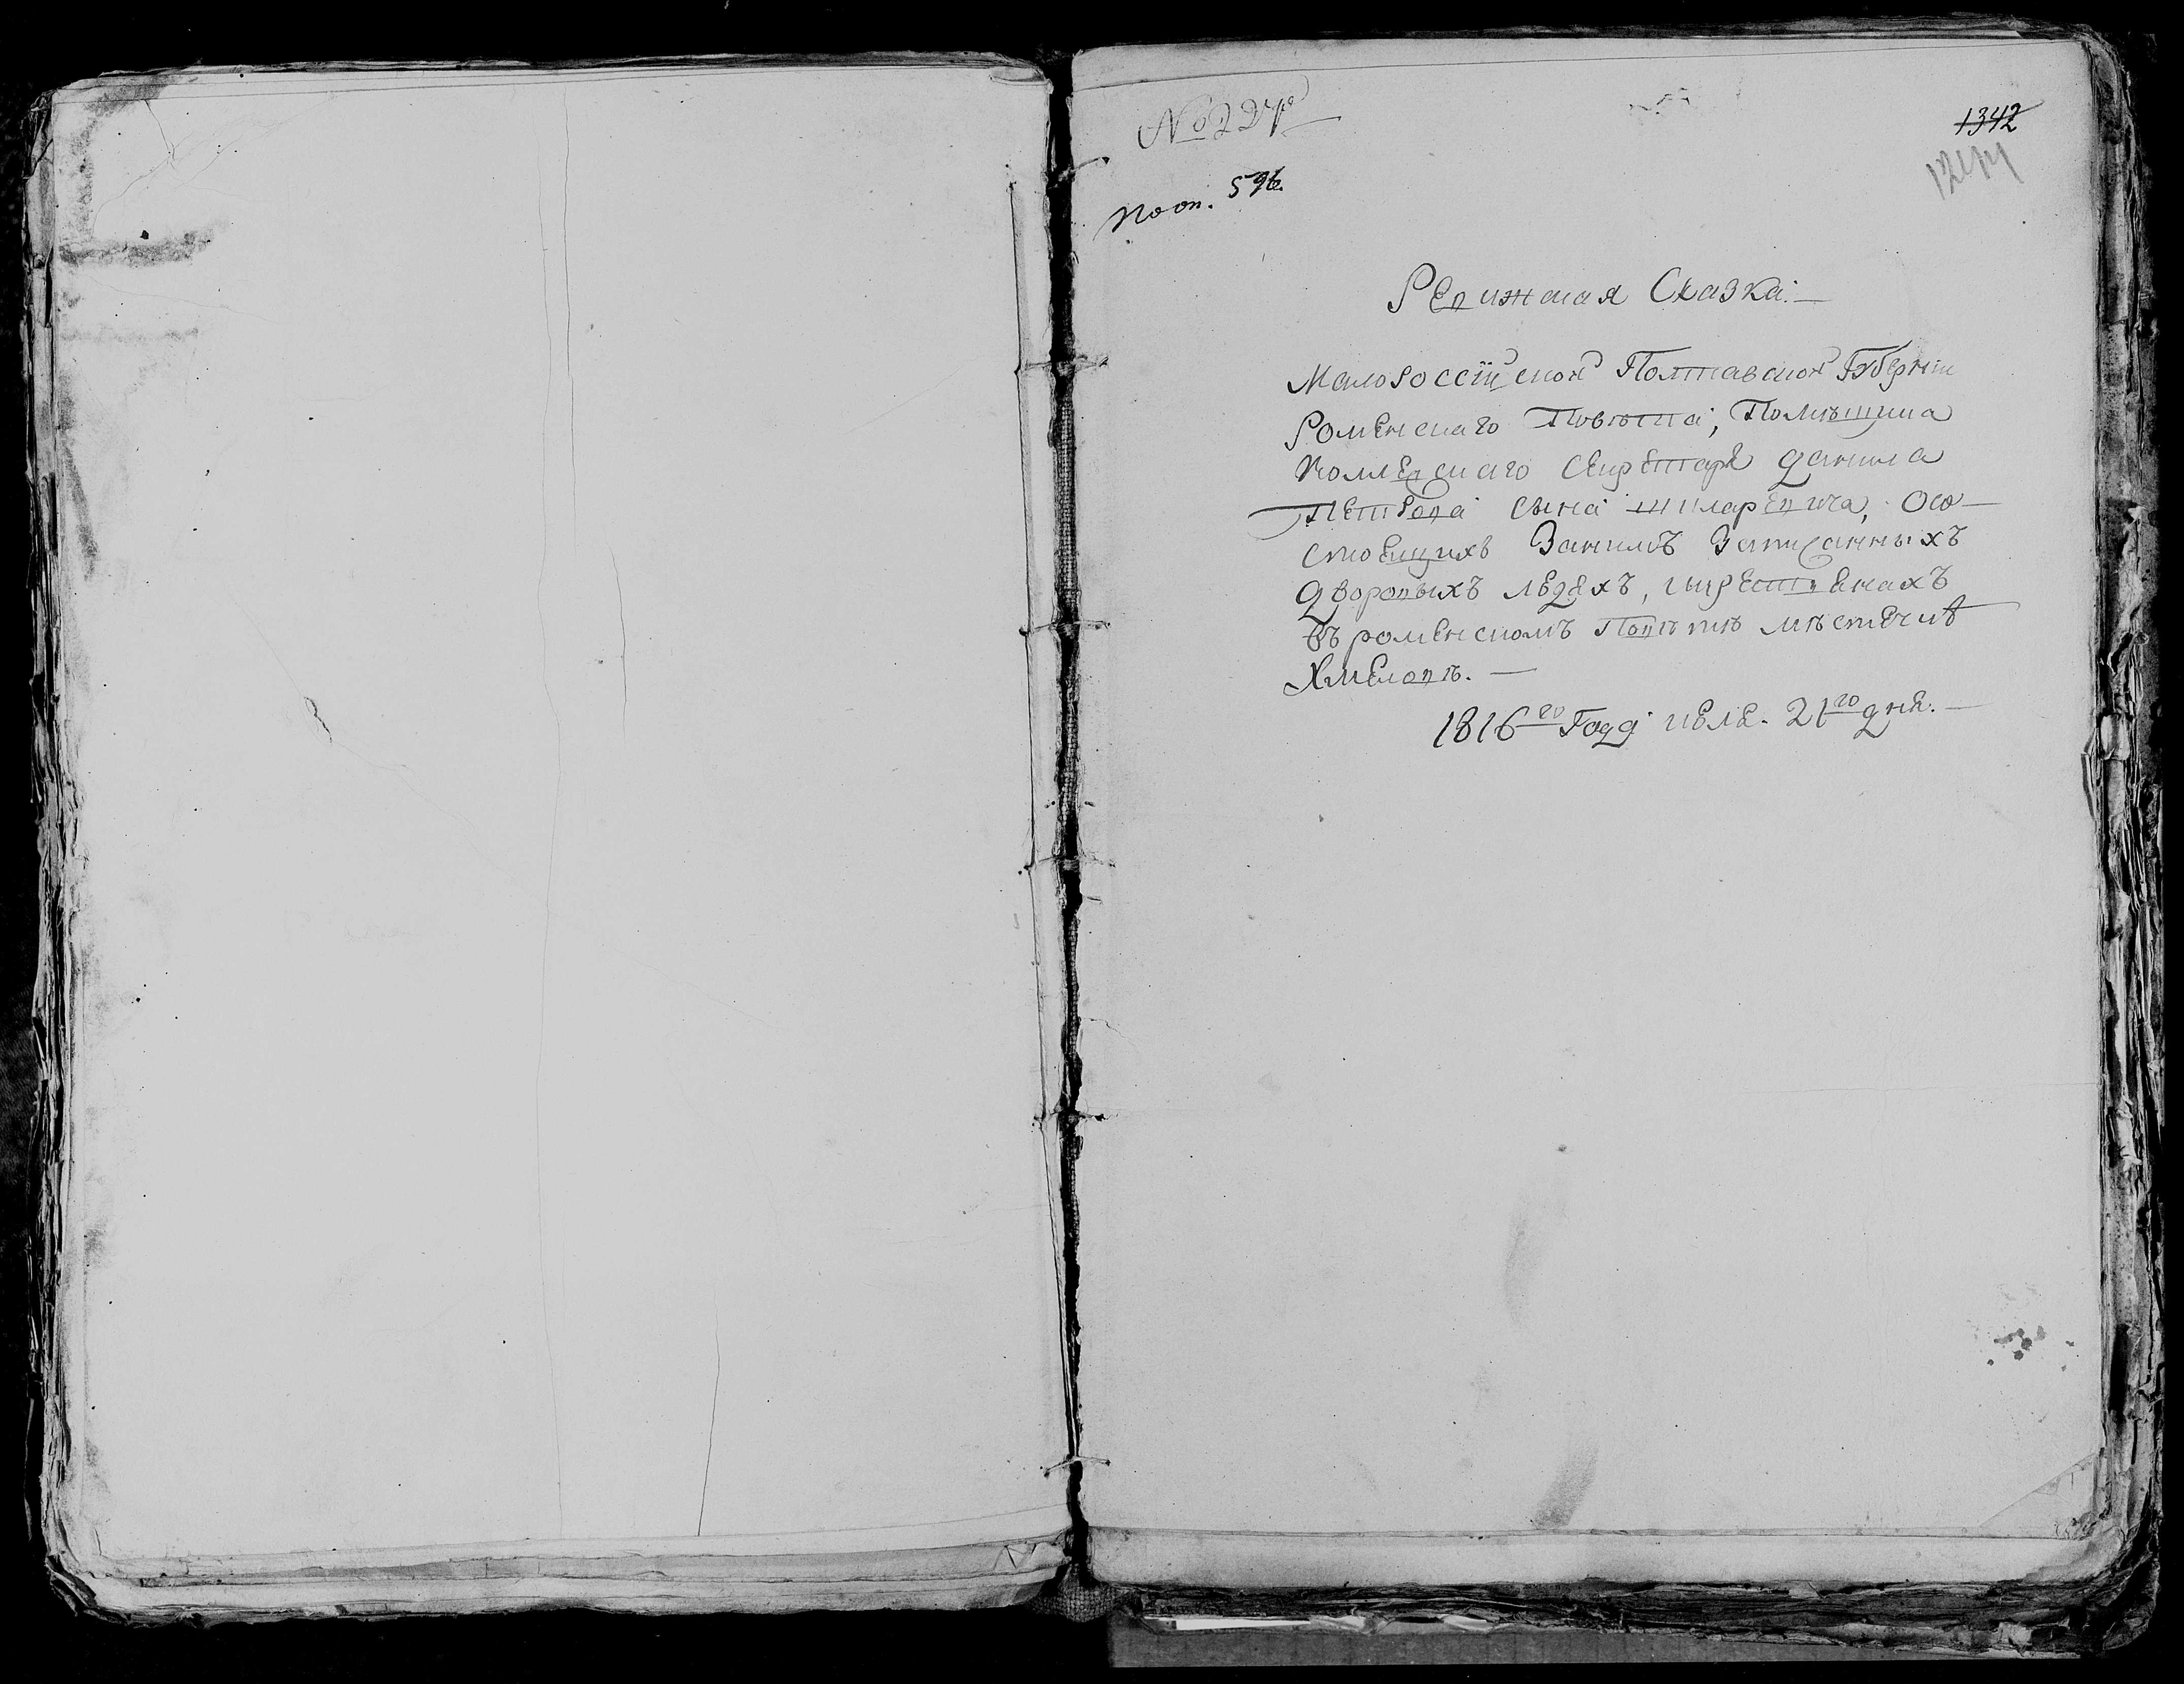 По оп. 596.
1342
Ревижская Сказка. —
Малороссійской Полтавской Губерніи
Роменскаго Повѣта, Помѣщика
Коллежскаго Секретаря Данила
Петрова сына Шкларевича, Осо-
стоящихъ Занимъ Записанныхъ
Дворовыхъ людяхъ, икрестьянахъ
въ роменскомъ Повѣтѣ мѣстечкѣ
Хмеловѣ. —
1816го Года июля. 21го дня. —